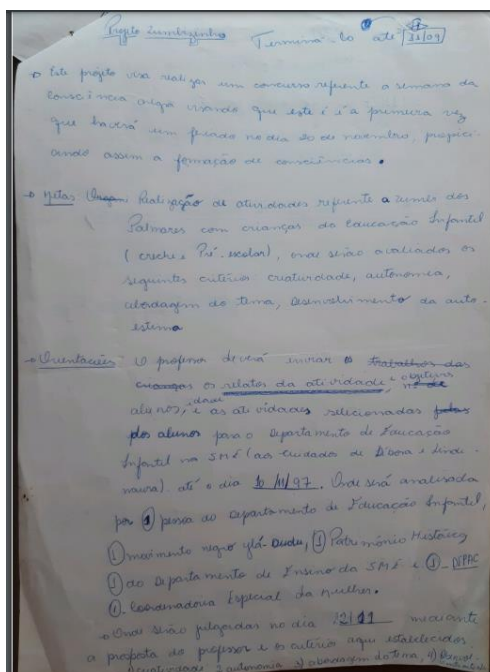 Projeto Zumbizinho Terminá-lo até 31/09
Este projeto visa realizar um concurso referente a semana da
consciência negra visando que este é a primeira vez
que haverá um feriado no dia 20 de novembro, propici-
ando assim a formação de consciências.
Metas Realização de atividades referente a Zumbi dos
Palmares com crianças da Educação Infantil
(creche e Pré-escolar), onde serão avaliados os
seguintes critérios creatividade, autonomia,
abordagem do tema, Desenvolvimento da auto-
estima
Orientações O professor deverá enviar os trabalhos das
crianças os relatos da atividade, e objetivos
idade
alunos, e as atividades selecionadas pelos
dos alunos para o Departamento de Educação
Infantil na SME (aos cuidados de Débora e Linde-
naura) até o dia 10/11/97. Onde será analisada
por 1 pessoa do Departamento de Educação Infantil,
1 movimento negro Ylá-Dudu, 1 Patrimônio Histórico
1 do Departamento de Ensino da SME e 1- DEPAC
1- Coordenadoria Especial da mulher.
Onde serão julgadas no dia 12/11 mediante
a proposta do professor e os critério aqui estabelecidos
creatividade 2 autonomia 3) abordagem do tema, 4)